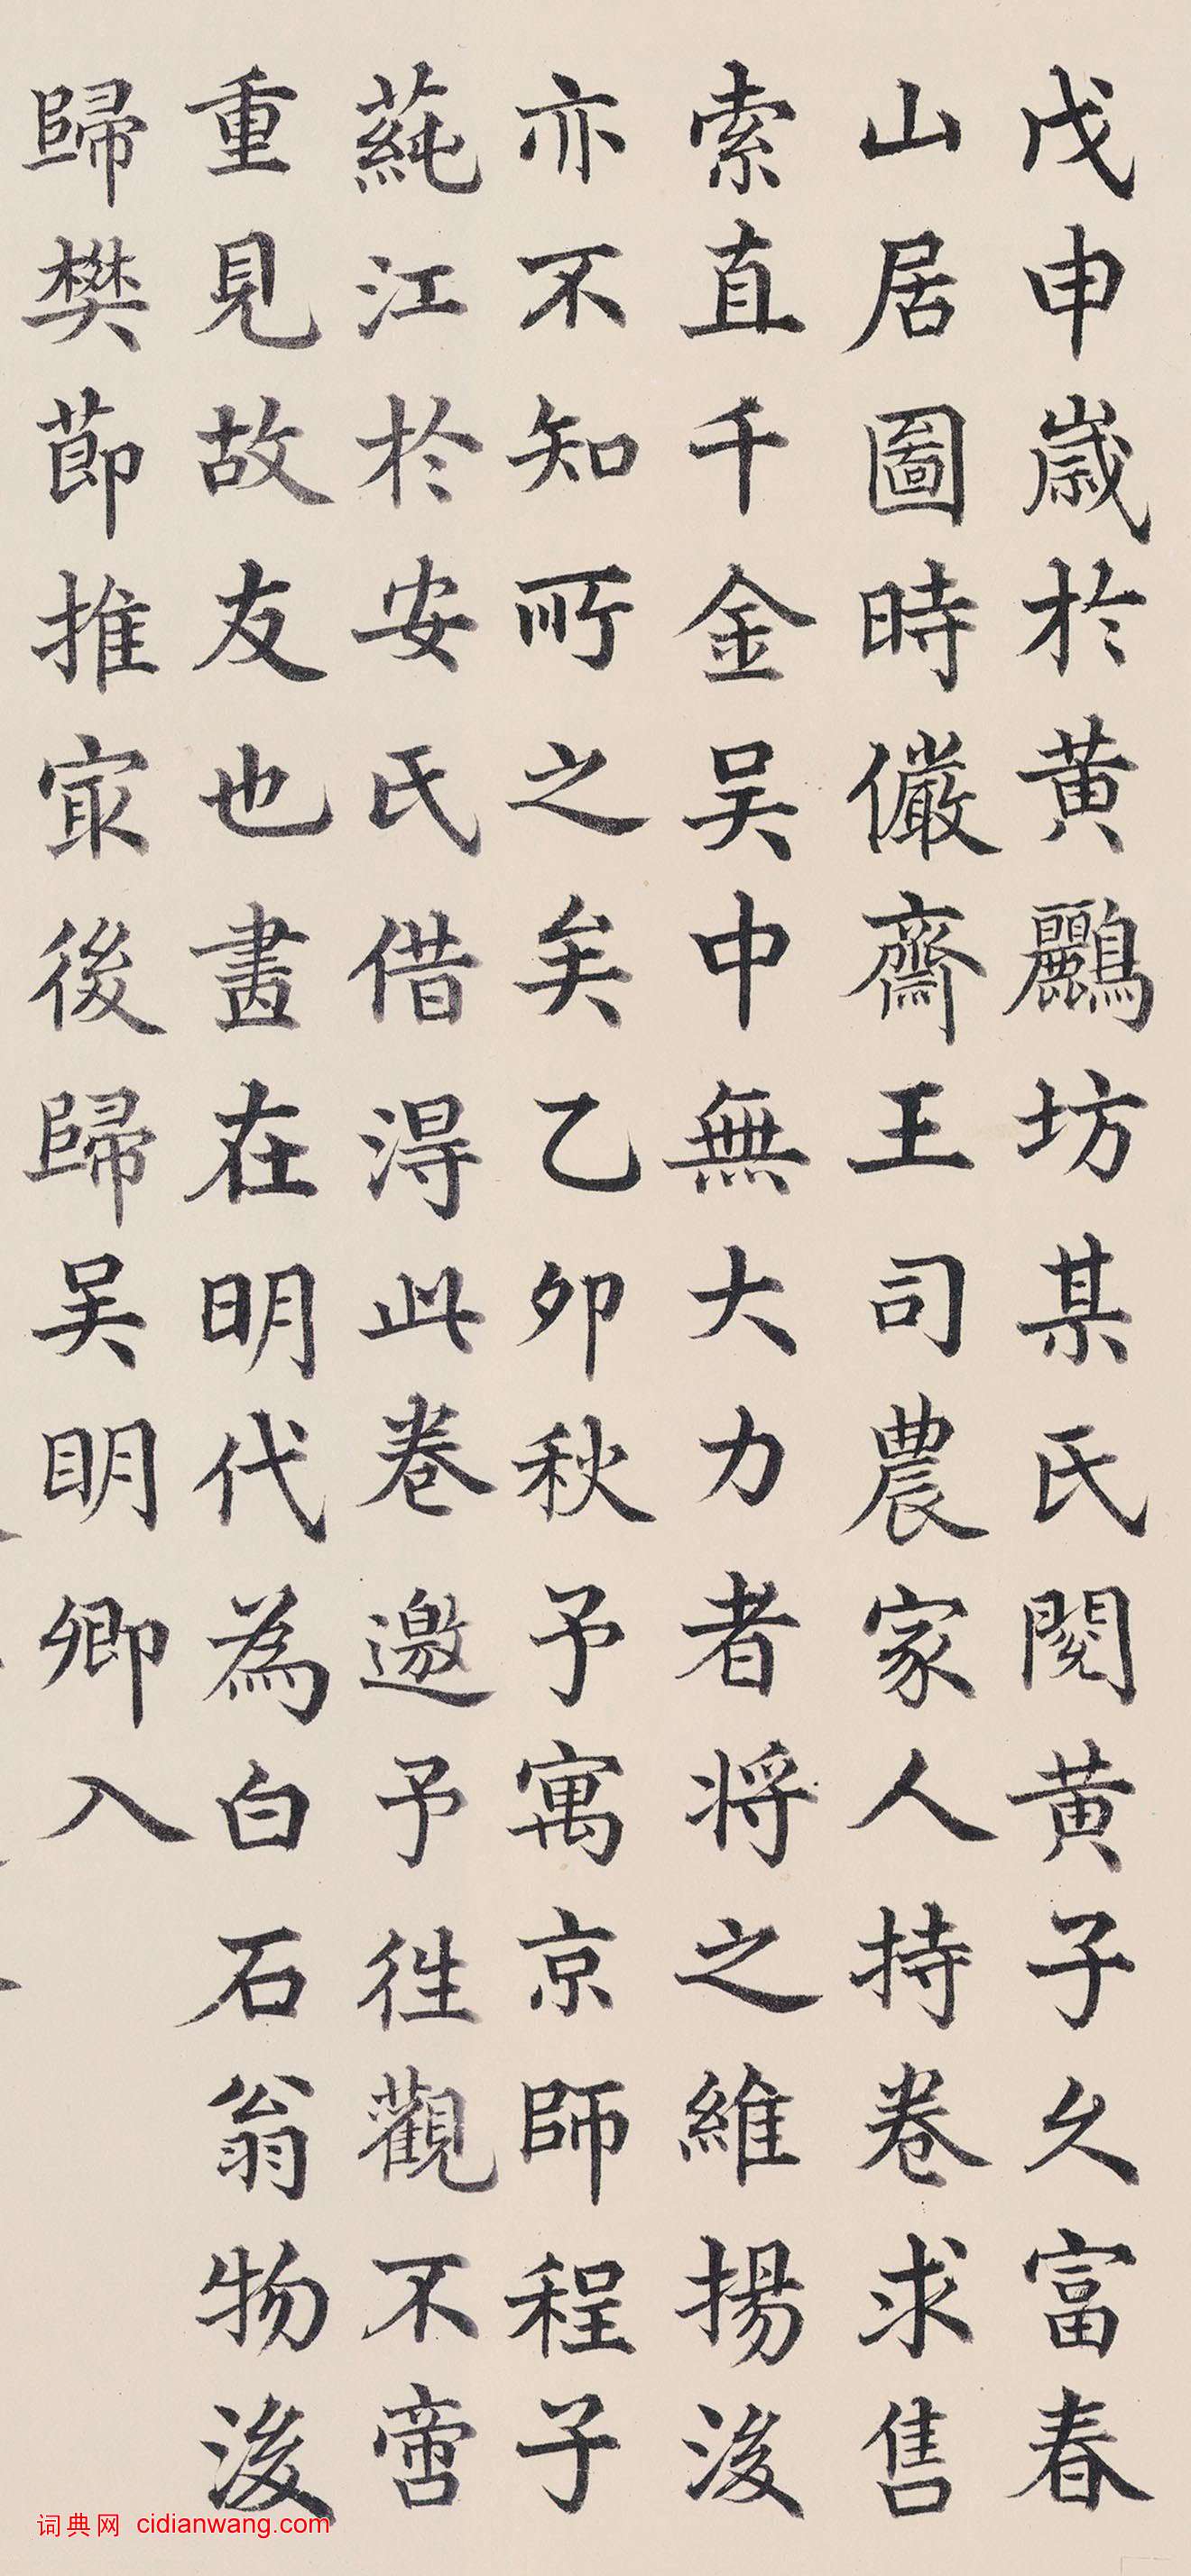 戊申歳於黄鸝坊某氏閱黄子久富春
山居圖時儼齋王司農家人持卷求售
索直千金吴中無大力者將之維揚後
亦不知所之矣乙卯秋予寓京師程子
蒓江於安氏借得此卷邀予往觀不啻
重見故友也畫在明代為白石翁物後
歸樊節推冣後歸吴明卿入
词典网 cidianwang.com